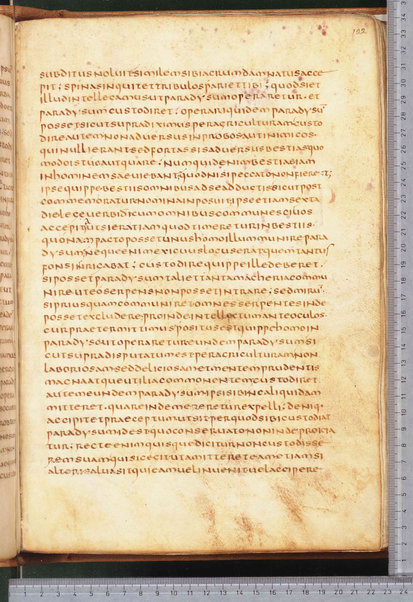 102
subditus noluit similem sibi acrum damnatus acce
pit; spinas inquit et tribulos pariet tibi; quod si et
illud intellecamus ut paradysum operaretur et
paradysum custodiret; operari quidem paradysu
posset sicut supra diximus per acriculturam custo
dire autem non adversus inprobos aut inimicos
qui nulli erant sed fortassis adversus bestias quo
modo istuc aut quare; numquid enim bestiae iam
in hominem saeviebant quod nisi peccato non fieret;
ipse quippe bestiis omnibus ad se adductis sicut post
commemoratur nomina inposuit ipse etiam sexta
die lece verbi di cum omnibus communes cibos
accepit aut si erat iam quod timeretur in bestiis
quonam pacto posset unus homo illum munire para
dysum neque enim exicuus locus erat quem tantus
fons inricabat; custodire quippe ille deberet
si posset paradysum tali et tanta maceria commu
nire ut eo serpens non posset intrare; sed mirum
si priusquam communiret omnes serpentes inde
posset excludere; proinde intellectum ante oculos
cur praetermittimus positus est quippe homo in
paradyso ut operaretur eundem paradysum si
cut supra disputatum est per acriculturam non
laboriosam sed deliciosam et mentem prudentis
macna atque utilia commonentem custodiret
autem eundem paradysum ipsi sibi ne aliquid am
mitteret quare inde mereretur expelli; deniq
accipit et praeceptum ut sit per quod sibi custodiat
paradysum id est quo conservato non inde proicia
tur; recte enim quisque dicitur non custodisse
rem suam qui sic ecit ut amitteret eam etiamsi
alteri salva sit qui eam vel invenit vel accipere